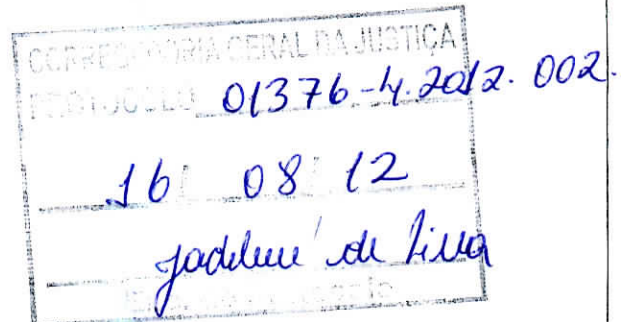 CORREGEDORIA GERAL DA JUSTIÇA
PROTOCOLO 01376-4.2012.002.
16 08 12
de